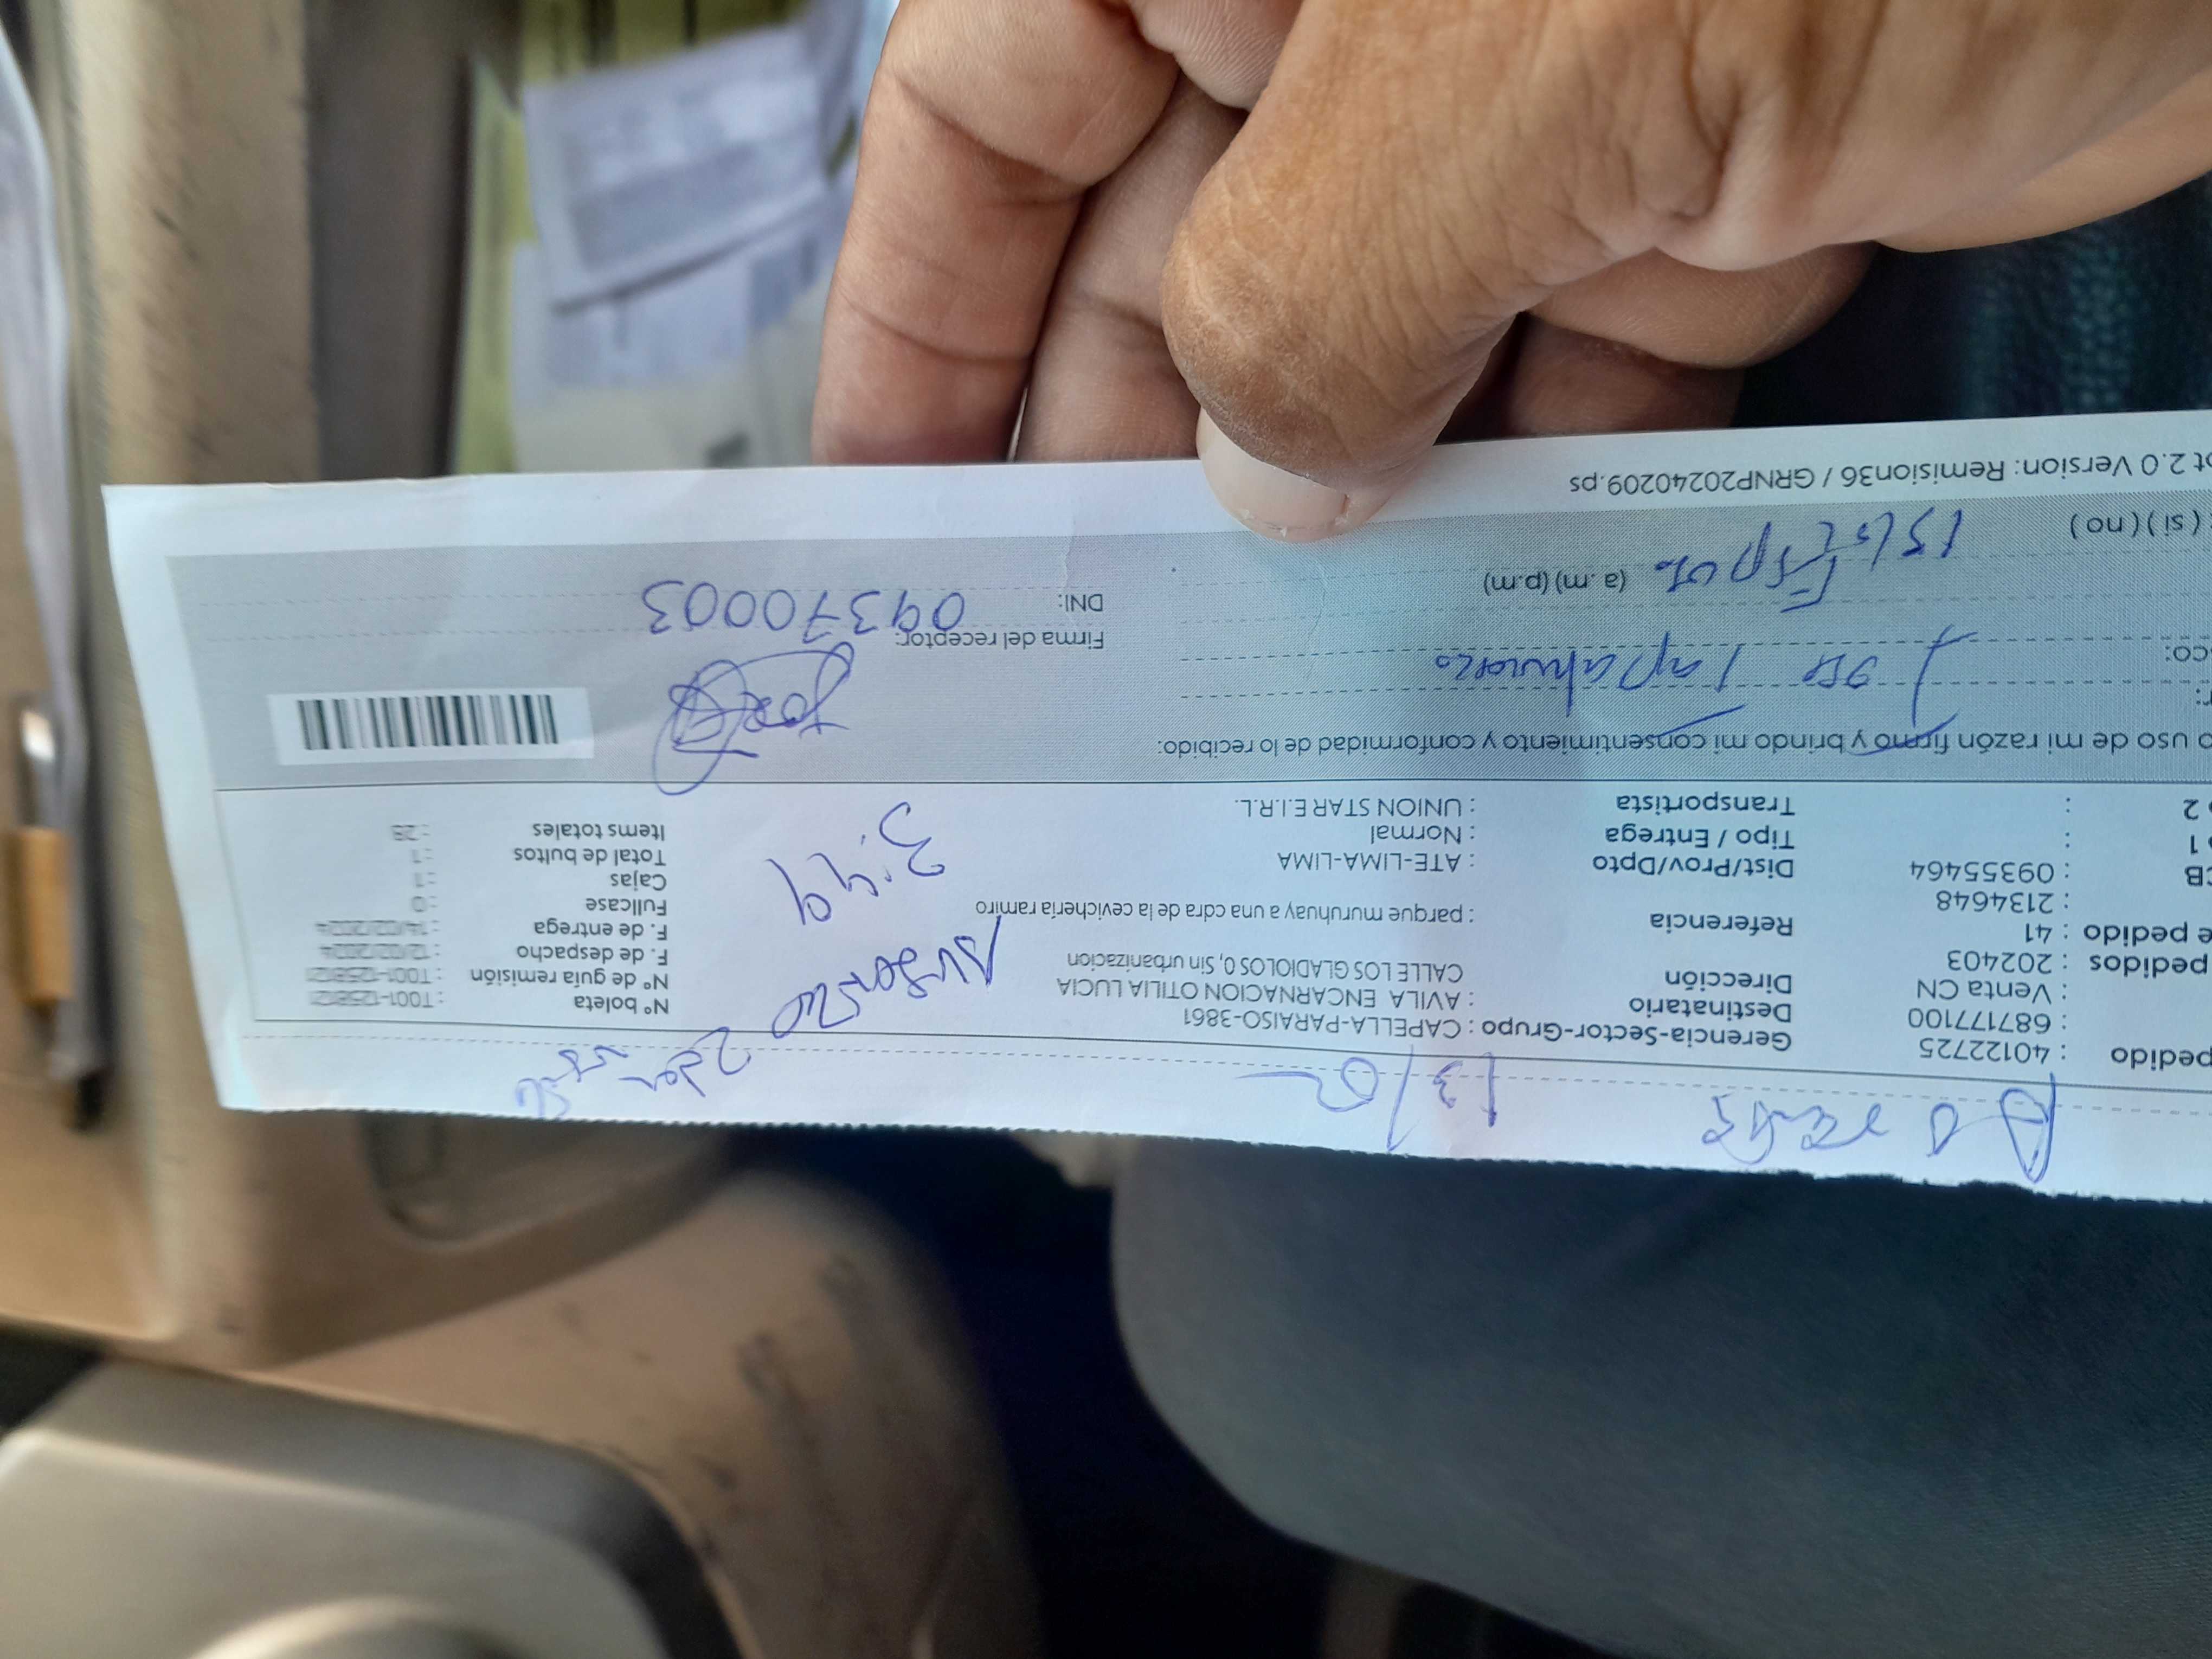 13/02
pedido : 40122725
: 687177100
: Venta CN
pedidos : 202403
e pedido : 41
: 2134648
CB : 09355464
1 :
2 :
Gerencia-Sector-Grupo : CAPELLA-PARAISO-3861
Destinatario : AVILA ENCARNACION OTILIA LUCIA
Dirección CALLE LOS GLADIOLOS 0, Sin urbanizacion
Referencia : parque muruhuay a una cdra de la cevicheria ramiro
Dist/Prov/Dpto : ATE-LIMA-LIMA
Tipo / Entrega : Normal
Transportista : UNION STAR E.I.R.L.
Ausente
3:49
N° boleta : T001-1258121
N° de guía remisión : T001-1258121
F. de despacho : 12/02/2024
F. de entrega : 14/02/2024
Fullcase : 0
Cajas : 1
Total de bultos : 1
Items totales : 29
o uso de mi razón firmo y brindo mi consentimiento y conformidad de lo recibido:
r:
co:
Jose
Esposo (a.m) (p.m)
( si ) ( no )
Firma del receptor:
DNI: 09370003
ot 2.0 Version: Remision36 / GRNP20240209.ps